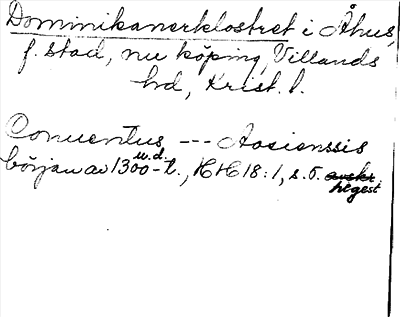 Dominikanerklostret i Åhus,
f. stad, nu köping, Villands
hd, Krist. l.
Conventus --- Aosienssis
u.d.
början av 1300-t., HH 18:1, s. 5. avskr.
regest